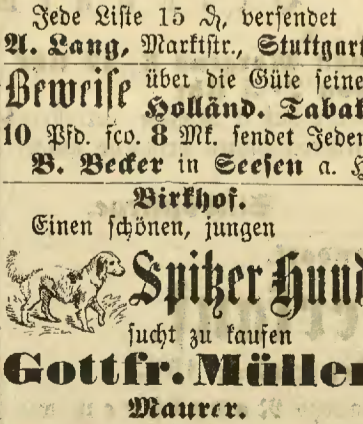 Jede Liste 15 ₰, versendet
A. Lang, Marktstr., Stuttgart
Beweise über die Güte seine
Holländ. Tabak
10 Pfd. fco. 8 Mk. sendet Jedem
B. Becker in Seesen a. H
Birkhof.
Einen schönen, jungen
Spitzer Hund
sucht zu kaufen
Gottfr. Müller
Maurer.